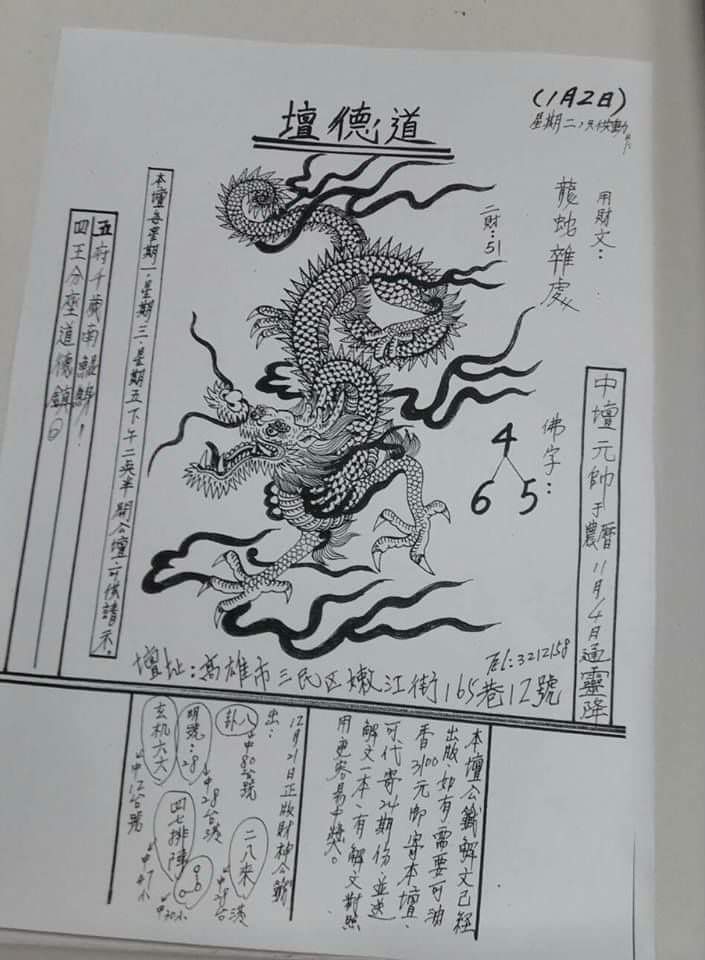 道德壇
(1月2日)
星期二，只供動
用財文：
龍蛇雜處
二財：51
佛字：
4
6 5
中壇元帥于農曆11月4日通靈降
本壇每星期一．星期三．星期五下午二点半開公壇，可供請示
五府千歲南鯤鯓！
四王分壇道德鎮。
Tel:3212158
壇址：高雄市三民区嫩江街165巷12號
本壇公籤解文已經
出版如有需要可油
香3100元即寄本壇．
可代寄24期份並送
解文一本、有解文對照
用更容易中獎。
12月21日正版財神公籤
出：
八卦
中80台號
明號：28
中28台港
玄机六六
中12台號
二八來
中28台港
四七排陣
中47小
中30小